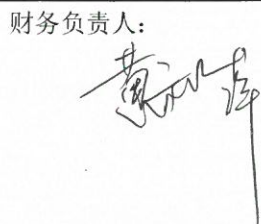 财务负责人：
黄